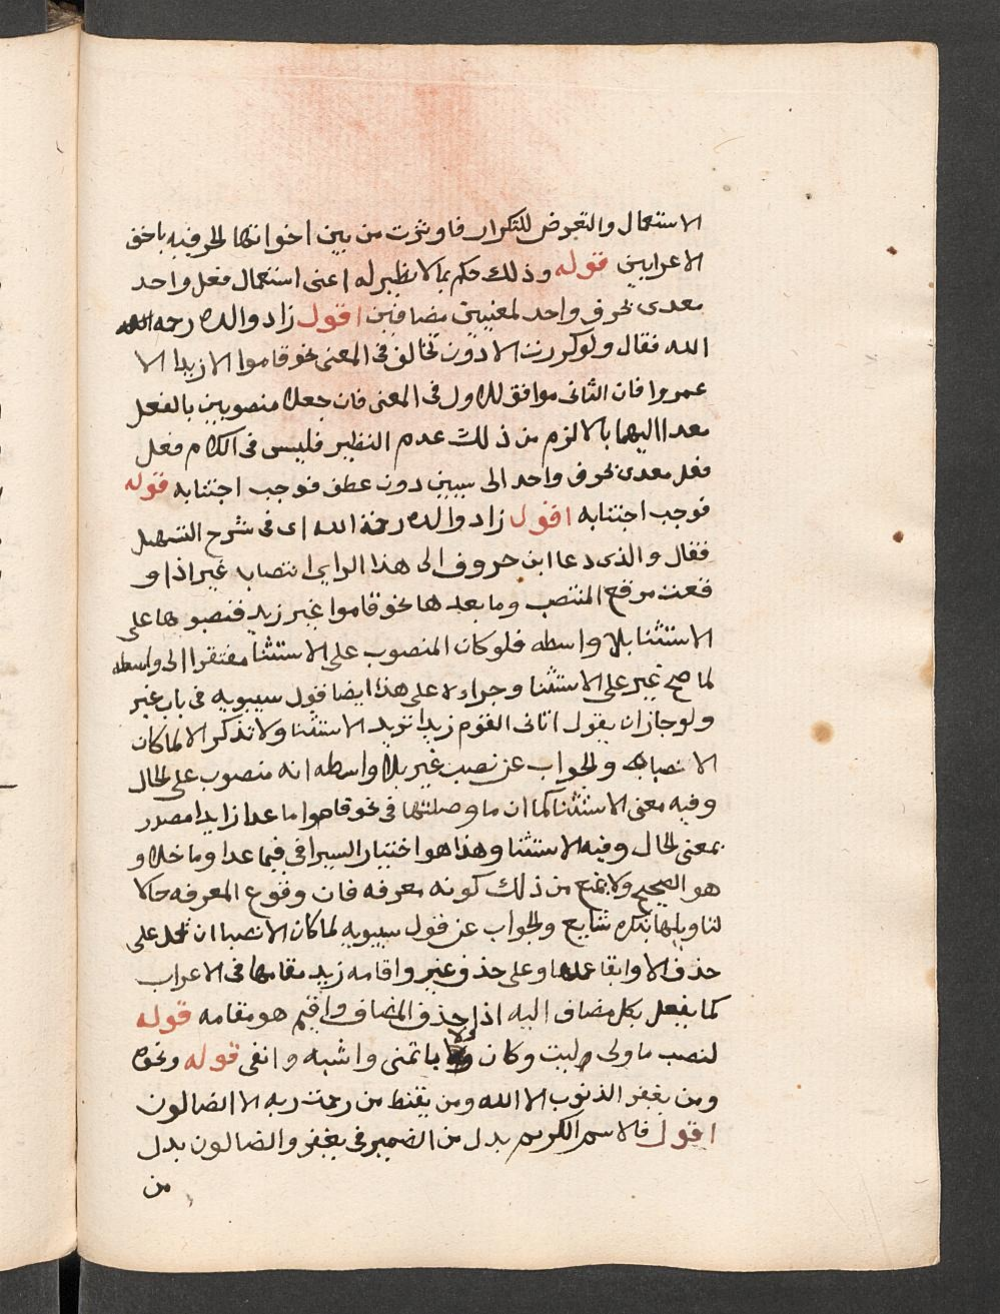 الاستعمال والتعرض للتكرار فاوثرت من بين اخواتها لحرفيه باخف
الاعرابين قوله وذلك حكم بما لا نظير له اعنى استعمال فعل واحد
معدى بحرف واحد لمعنيين مضافين اقول زاد والده رحمه الله
الله فقال ولوكررت الا دون تخالف فى المعنى نحو قاموا الا زيدا الا
عمروا فان الثانى موافق للاول فى المعنى فان جعلا منصوبين بالفعل
معدا اليهما بالا لزم من ذلك عدم النظير فليس فى الكلام فعل
فعل معدى بحرف واحد الى سيين دون عطف فوجب اجتنابه قوله
فوجب اجتنابه اقول زاد والده رحمة الله اى فى شرح التسهيل
فقال والذى دعا ابن حروف الى هذا الراى انتصاب غير اذا و
قعت موقع المنتصب وما بعدها نحو قاموا غير زيد فنصبوها على
الاستثنا بلا واسطه فلو كان المنصوب على الاستثنا مفتقرا الى واسطه
لما صح غير على الاستثنا وجراءه على هذا ايضا قول سيبويه فى باب غير
ولو جاز ان يقول اتانى القوم زيدا تريد الاستثنا ولا تذكر الا لما كان
الا نصبا والجواب عن نصب غير بلا واسطه انه منصوب على الحال
وفيه معنى الاستثنا كما ان ما وصلتها فى نحو قاموا ما عدا زيدا مصدر
بمعنى الحال وفيه الاستثنا وهذا هو اختيار السيرافى فيما عدا وما خلا و
هو الصحيح ولا يمنع من ذلك كونه معرفه فان وقوع المعرفه حالا
لتاويلها بنكره شايع والجواب عن قول سيبويه لما كان الا نصبا ان تحمل على
حذف الا وابقا عملها وعلى حذف غير واقامه زيد مقامها فى الاعراب
كما يفعل بكل مضاف اليه اذا حذف المضاف واقيم هو مقامه قوله
لنصب ما ولى ليت وكان ولا باتمنى واشبه وانفى قوله ونحوه
ومن يغفر الذنوب الا الله ومن يقنط من رحمة ربه الا الضالون
اقول فالاسم الكريم بدل من الضمير فى يغفر والضالون بدل
من